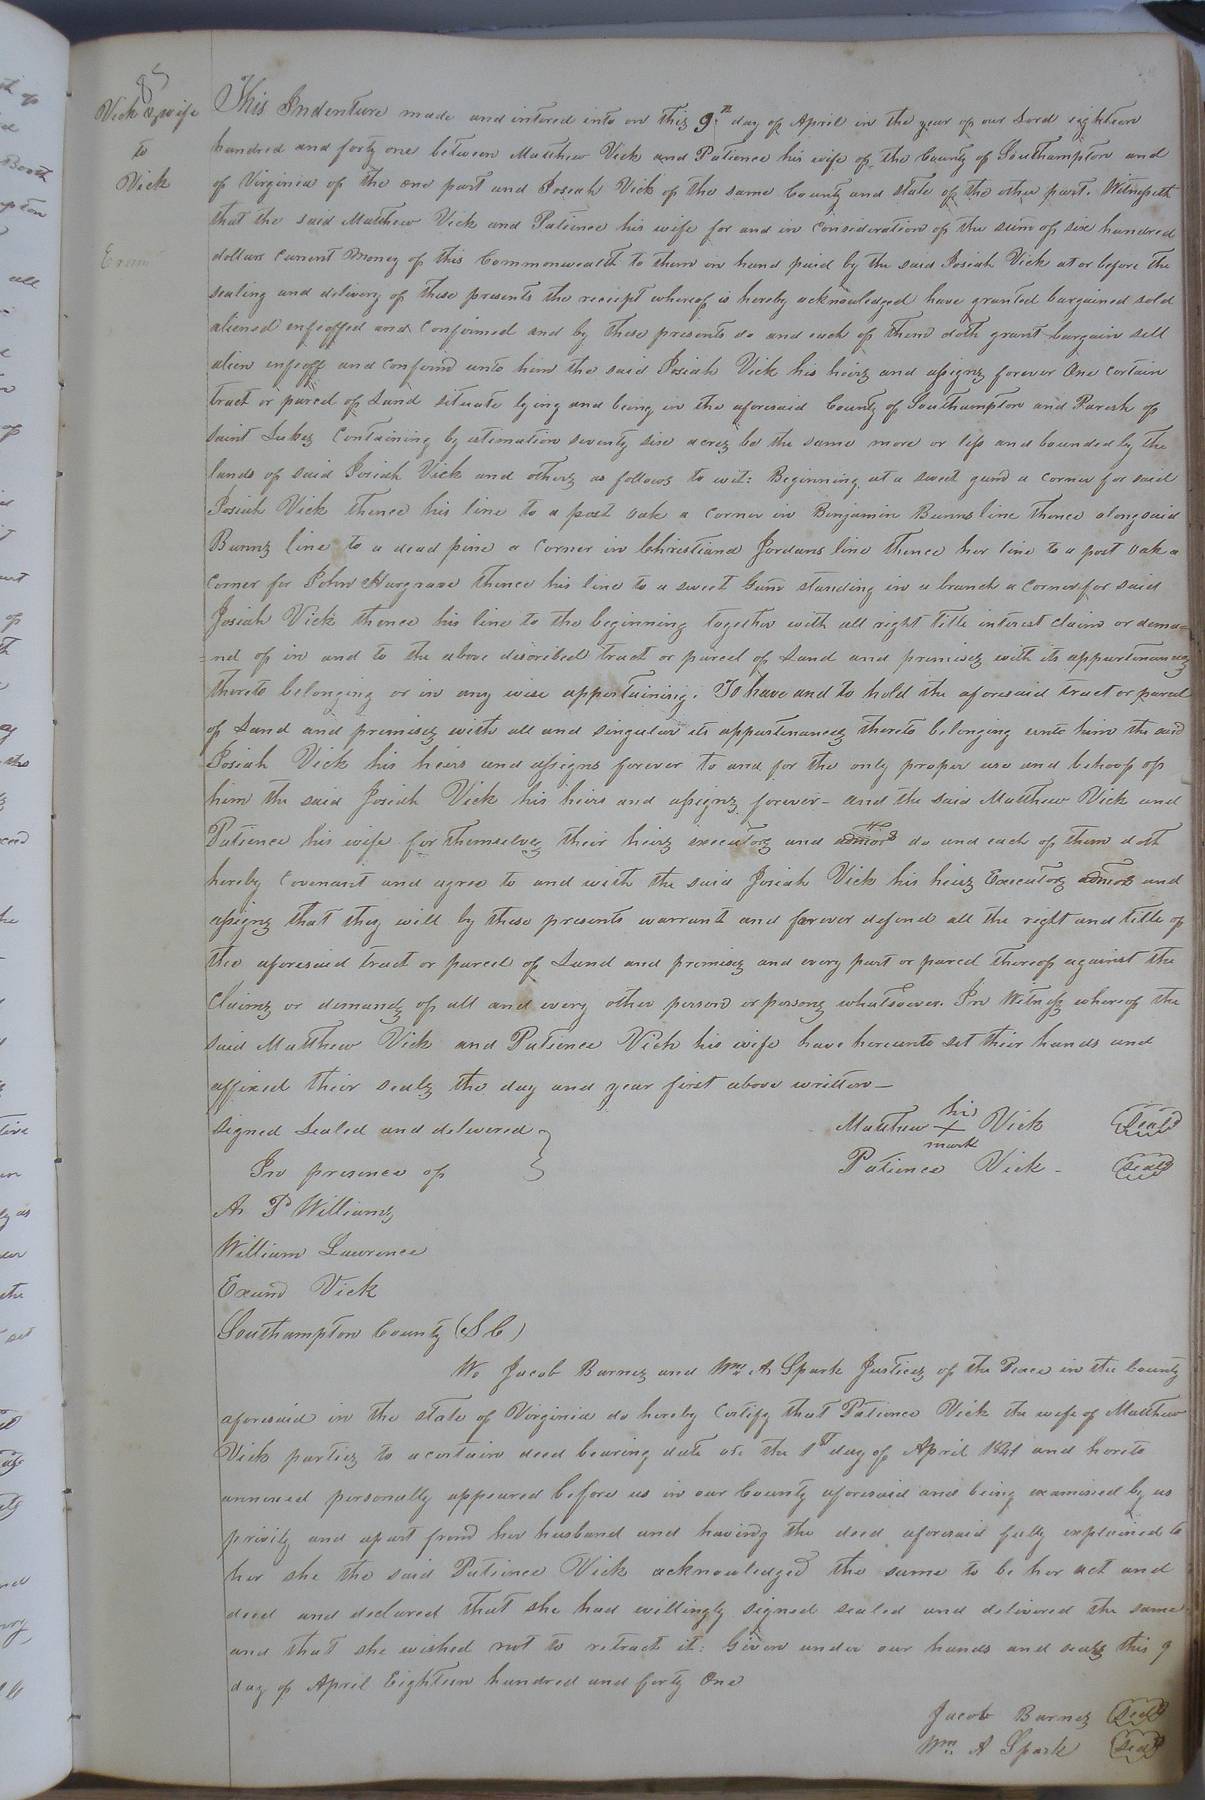 85
Vick & wife
to
Vick
Exam
This Indenture made and intered into on this 9th day of April in the year of our Lord eighteen
hundred and forty one between Matthew Vick and Patience his wife of the County of Southampton and
of Virginia of the one part and Josiah Vick of the same County and state of the other part. Witnesseth
that the said Matthew Vick and Patience his wife for and in consideration of the sum of six hundred
dollars current money of this Commonwealth to them in hand paid by the said Josiah Vick at or before the
sealing and delivery of these presents the receipt whereof is hereby acknowledged have granted bargained sold
aliened enfeoffed and confirmed and by these presents do and each of them doth grant bargain sell
alien enfeoff and confirm unto him the said Josiah Vick his heirs and assigns forever One certain
tract or parcel of Land situate lying and being in the aforesaid County of Southampton and Parish of
saint Lukes Containing by estimation seventy six acres be the same more or less and bounded by the
lands of said Josiah Vick and others as follows to wit: Beginning at a sweet gum a corner for said
Josiah Vick thence his line to a post oak a corner in Benjamin Bunns line thence along said
Bunns line to a dead pine a corner in Christiana Jordans line thence her line to a post oak a
corner for John Hargrave thence his line to a sweet Gum standing in a branch a corner for said
Josiah Vick thence his line to the beginning together with all right title interest claim or dema=
=nd of in and to the above discribed tract or parcel of Land and premises with its appurtenances
thereto belonging or in any wise appertaining. To have and to hold the aforesaid tract or parcel
of Land and premises with all and singular its appurtenances thereto belonging unto him the said
Josiah Vick his heirs and assigns forever to and for the only proper use and behoof of
him the said Josiah Vick his heirs and assigns forever - and the said Matthew Vick and
Patience his wife for themselves their heirs executors and admors do and each of them doth
hereby Covenant and agree to and with the said Josiah Vick his heirs Executors admors and
assigns that they will by these presents warrant and forever defend all the right and title of
the aforesaid tract or parcel of Land and premises and every part or parcel thereof against the
Claims or demands of all and every other person or persons whatsoever. In Witness whereof the
said Matthew Vick and Patience Vick his wife have hereunto set their hands and
affixed their seals the day and year first above written -
Signed Sealed and delivered } Matthew his X mark Vick (Seal)
In presence of Patience Vick - (Seal)
A. P Williams
William Lawrence
Exum Vick
Southampton County (S C)
We Jacob Barnes and Wm A Spark Justices of the Peace in the County
aforesaid in the state of Virginia do hereby Certify that Patience Vick the wife of Matthew
Vick parties to a certain deed bearing date on the 1st day of April 1841 and hereto
annexed personally appeared before us in our County aforesaid and being examined by us
privily and apart from her husband and having the deed aforesaid fully explained to
her she the said Patience Vick acknowledged the same to be her act and
deed and declared that she had willingly signed sealed and delivered the same
and that she wished not to retract it: Given under our hands and seals this 9
day of April Eighteen hundred and forty One
Jacob Barnes (Seal)
Wm A Spark (Seal)